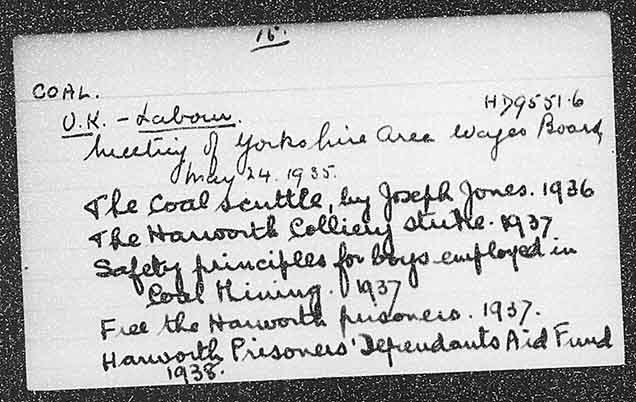 15.
COAL.
U.K. - Labour. HD9551.6
Meeting of Yorkshire Area Wages Board,
May 24. 1935.
The Coal Scuttle, by Joseph Jones. 1936
The Harworth Colliery strike. 1937
Safety principles for boys employed in
Coal Mining. 1937
Free the Harworth prisoners. 1937.
Harworth Prisoners' Dependants Aid Fund
1938.